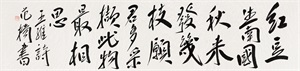 紅豆
生南國
秋来
發幾
枝願
君多采
擷此物
最相
思
王維詩
書